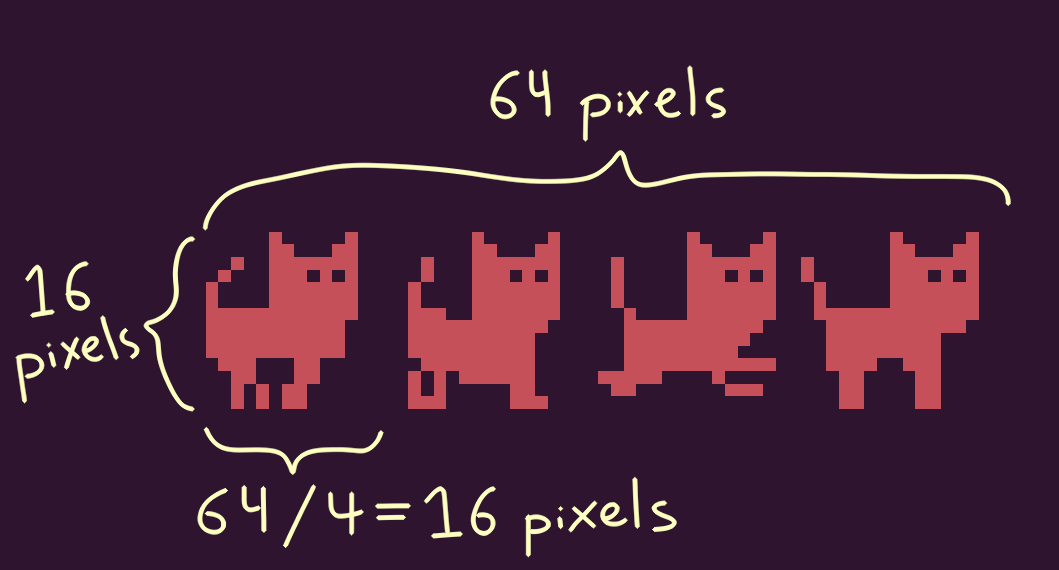 64 pixels
16
pixels
64/4=16 pixels